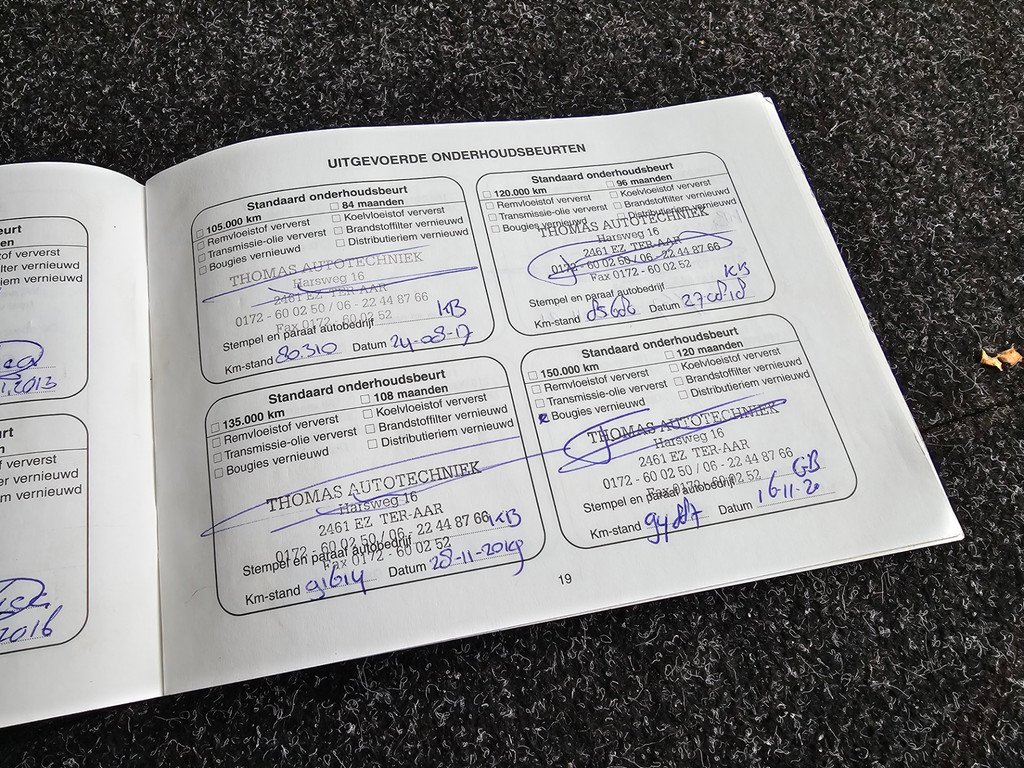 eurt
en
ververst
filter vernieuwd
iem vernieuwd
2013
urt
n
f ververst
er vernieuwd
m vernieuwd
2016
UITGEVOERDE ONDERHOUDSBEURTEN
Standaard onderhoudsbeurt
105.000 km 84 maanden
Remvloeistof ververst Koelvloeistof ververst
Transmissie-olie ververst Brandstoffilter vernieuwd
Bougies vernieuwd Distributieriem vernieuwd
THOMAS AUTOTECHNIEK
Harsweg 16
2461 EZ TER-AAR
0172 - 60 02 50 / 06 - 22 44 87 66
Fax 0172 - 60 02 52
Stempel en paraaf autobedrijf KB
Km-stand 80.310 Datum 24-08-17
Standaard onderhoudsbeurt
120.000 km 96 maanden
Remvloeistof ververst Koelvloeistof ververst
Transmissie-olie ververst Brandstoffilter vernieuwd
Bougies vernieuwd Distributieriem vernieuwd
THOMAS AUTOTECHNIEK
Harsweg 16
2461 EZ TER-AAR
0172 - 60 02 50 / 06 - 22 44 87 66
Fax 0172 - 60 02 52
Stempel en paraaf autobedrijf KB
Km-stand Datum 27-08-18
Standaard onderhoudsbeurt
135.000 km 108 maanden
Remvloeistof ververst Koelvloeistof ververst
Transmissie-olie ververst Brandstoffilter vernieuwd
Bougies vernieuwd Distributieriem vernieuwd
THOMAS AUTOTECHNIEK
Harsweg 16
2461 EZ TER-AAR
0172 - 60 02 50 / 06 - 22 44 87 66
Fax 0172 - 60 02 52
Stempel en paraaf autobedrijf KB
Km-stand 91614 Datum 28-11-2019
Standaard onderhoudsbeurt
150.000 km 120 maanden
Remvloeistof ververst Koelvloeistof ververst
Transmissie-olie ververst Brandstoffilter vernieuwd
Bougies vernieuwd Distributieriem vernieuwd
THOMAS AUTOTECHNIEK
Harsweg 16
2461 EZ TER-AAR
0172 - 60 02 50 / 06 - 22 44 87 66
Fax 0172 - 60 02 52
Stempel en paraaf autobedrijf GB
Km-stand Datum 16-11-20
19